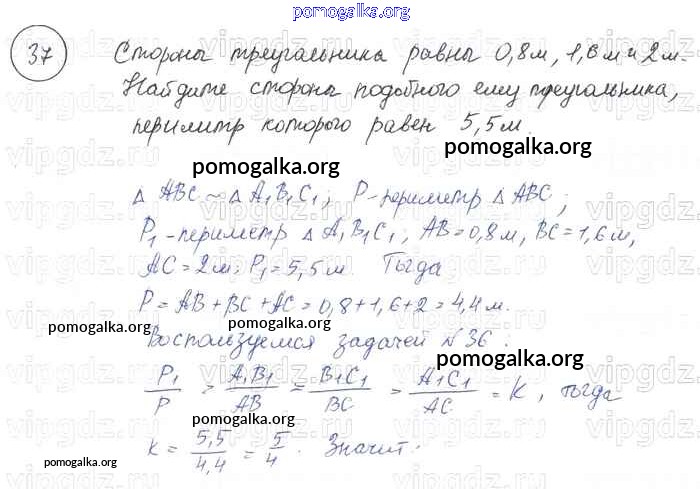 pomogalka.org
37 Стороны треугальника равны 0,8м, 1,6м и 2м.
Найдите стороны подобного ему треугальника,
периметр которого равен 5,5м.
pomogalka.org
pomogalka.org
Δ ABC ~ Δ A₁B₁C₁; P-периметр Δ ABC;
P₁-периметр Δ A₁B₁C₁; AB=0,8м, BC=1,6м,
AC=2м; P₁=5,5м. Тогда
P=AB+BC+AC=0,8+1,6+2=4,4м.
pomogalka.org
pomogalka.org
Воспользуемся задачей №36:
pomogalka.org
P₁/P = A₁B₁/AB = B₁C₁/BC = A₁C₁/AC = K, тогда
pomogalka.org
K = 5,5/4,4 = 5/4. Значит:
pomogalka.org
pomogalka.org